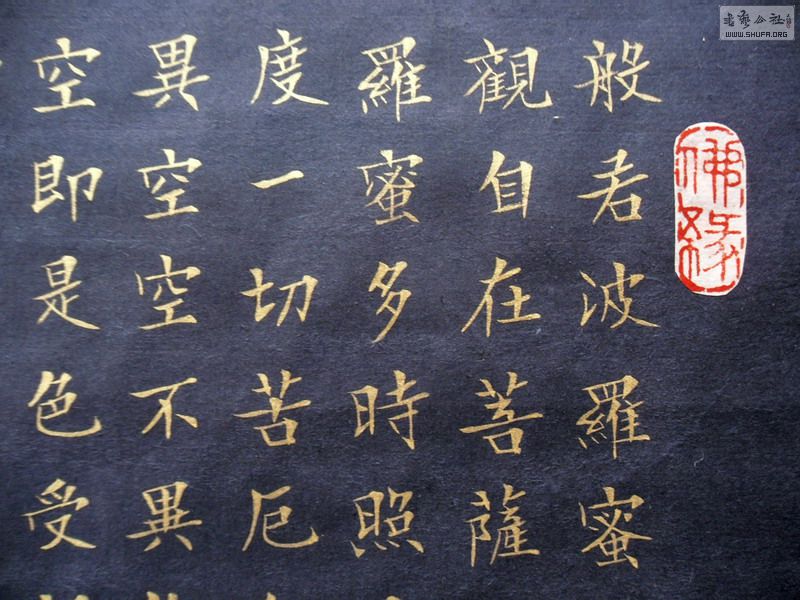 般若波羅蜜
觀自在菩薩
羅蜜多時照
度一切苦厄
異空空不異
空即是色受
佛緣
書藝公社
WWW.SHUFA.ORG